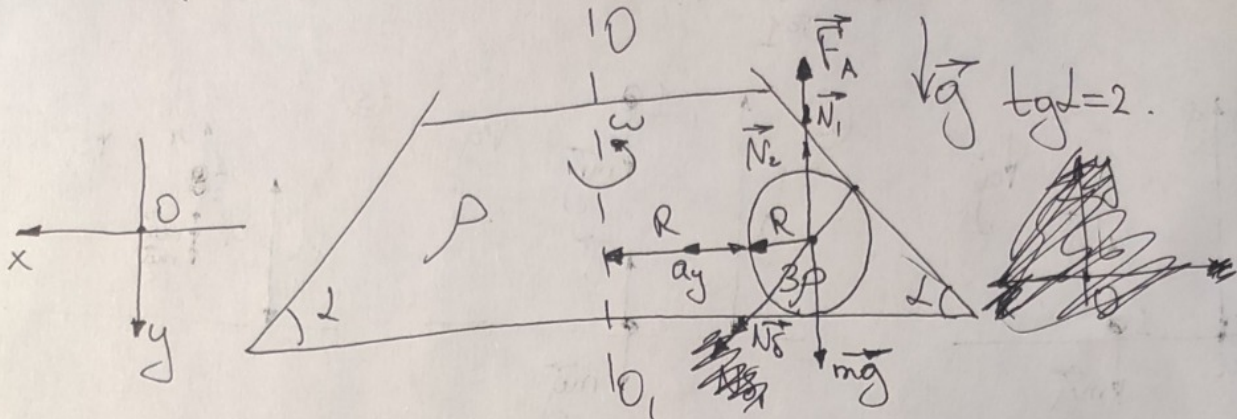 O
F_A
N_1
g
tgα=2.
ω
N_2
O
x
ρ
R
R
a_y
3ρ
α
α
y
N_δ
mg
O_1